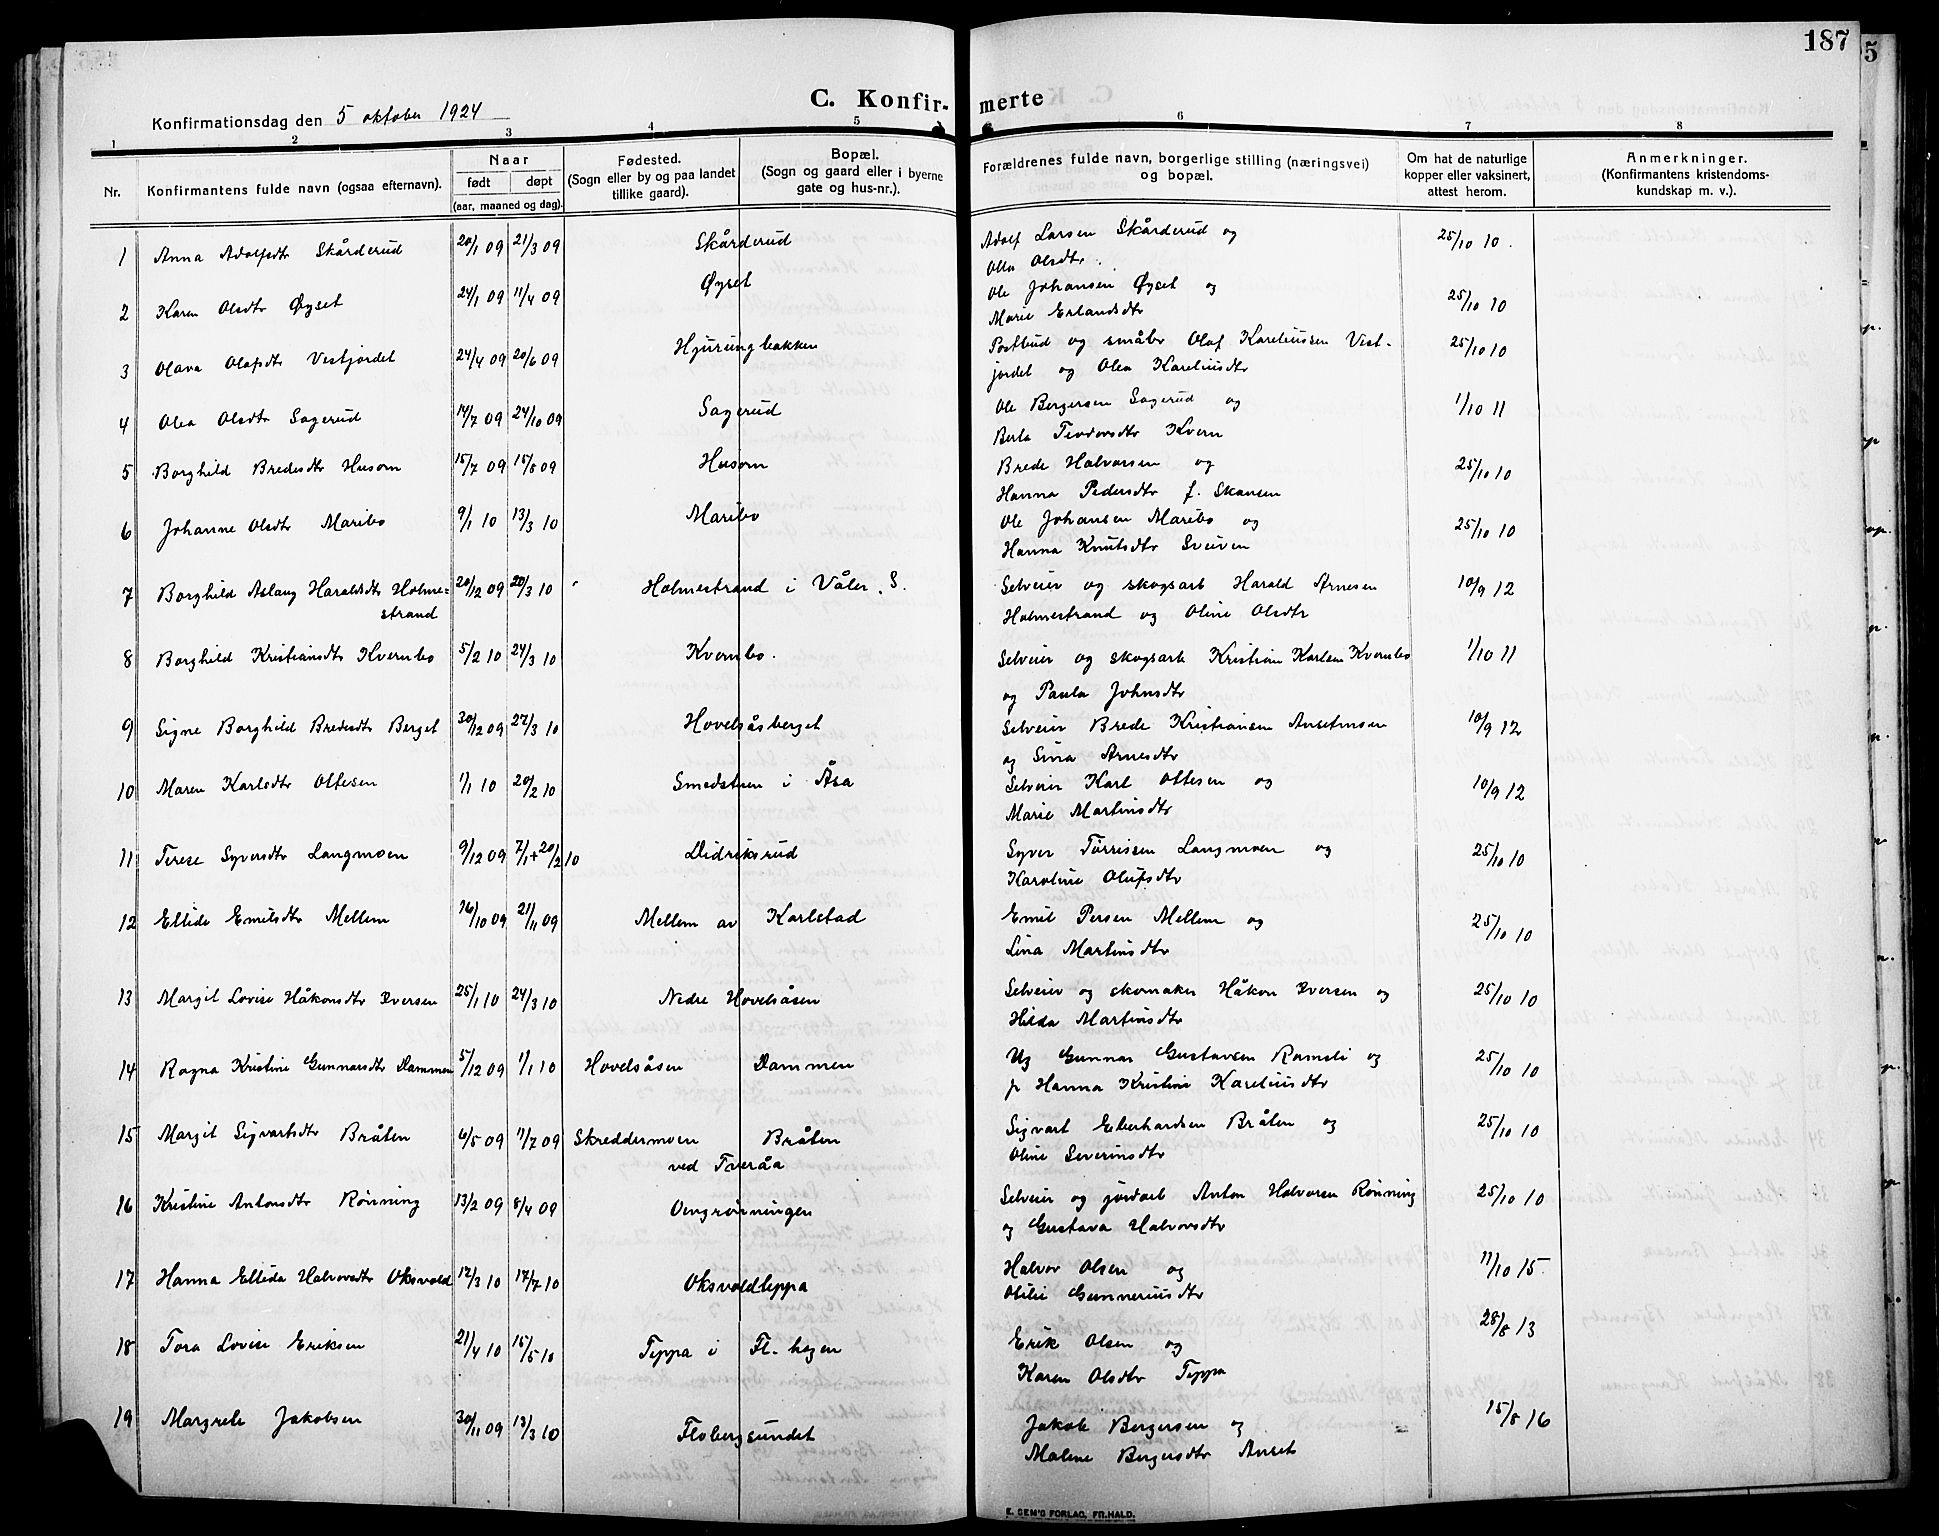 187
5
C. Konfir- merte
Konfirmationsdag den 5 oktober 1924
1 2 3 4 5 6 7 8
Nr. Konfirmantens fulde navn (ogsaa efternavn). Naar født døpt (aar, maaned og dag). Fødested. (Sogn eller by og paa landet tillike gaard). Bopæl. (Sogn og gaard eller i byerne gate og hus-nr.). Forældrenes fulde navn, borgerlige stilling (næringsvei) og bopæl. Om hat de naturlige kopper eller vaksinert, attest herom. Anmerkninger. (Konfirmantens kristendomskundskap m. v.).
1 Anna Adolfsdtr Skårderud 20/1 09 21/3 09 Skårderud Adolf Larsen Skårderud og 25/10 10.
Olea Olsdtr.
2 Karen Olsdtr Øyset 24/1 09 11/4 09 Øyset Ole Johansen Øyset og 25/10 10
Marie Erlandsdtr
3 Olava Olafsdtr Vestjordet 24/4 09 20/6 09 Hjurungbakken Postbud og småbr Olaf Kareliussen Vest- 25/10 10
jordet og Olea Kareliusdtr
4 Olea Olsdtr Sagerud 14/7 09 24/10 09 Sagerud Ole Bergersen Sagerud og 1/10 11
Berta Teodorsdtr Kvern
5 Borghild Bredesdtr Husom 15/7 09 15/8 09 Husom Brede Halvorsen og 25/10 10
Hanna Pedersdtr f. Skansen
6 Johanne Olsdtr Maribo 9/1 10 13/3 10 Maribo Ole Johansen Maribo og 25/10 10
Hanna Knutsdtr Sveiven
7 Borghild Aslaug Haraldsdtr Holme= 20/12 09 20/3 10 Holmestrand i Våler. S. Selveier og skogsarb Harald Arnesen 10/9 12
strand Holmestrand og Oline Olsdtr
8 Borghild Kristiansdtr Kvernbo 5/2 10 24/3 10 Kvernbo. Selveier og skogsarb Kristian Karlsen Kvernbo 1/10 11
og Paula Johnsdtr
9 Signe Borghild Bredesdtr Berget 30/12 09 27/3 10 Hovelsåsberget Selveier Brede Kristiansen Anselmsen 10/9 12
og Lina Arnesdtr
10 Maren Karlsdtr Ottesen 1/1 10 20/2 10 Smedstuen i Åsa Selveier Karl Ottesen og 10/9 12
Marie Martinsdtr
11 Terese Syversdtr Langmoen 9/12 09 7/1+20/2 10 Didriksrud Syver Torrissen Langmoen og 25/10 10
Karoline Olufsdtr
12 Ellide Emilsdtr Mellem 16/10 09 21/11 09 Mellem av Karlstad Emil Persen Mellem og 25/10 10
Lina Martinsdtr
13 Margit Lovise Håkonsdtr Iversen 25/1 10 24/3 10 Nedre Hovelsåsen Selveier og skomaker Håkon Iversen og 25/10 10
Hilda Martinsdtr
14 Ragna Kristine Gunnarsdtr Dammen 5/12 09 1/1 10 Hovelsåsen Dammen Ug Gunnar Gustavsen Ramsli og 25/10 10
p Hanna Kristine Kareliusdtr
15 Margit Sigvartsdtr Bråten 6/5 09 11/7 09 Skreddermoen Bråten Sigvart Eberhardsen Bråten og 25/10 10
ved Tveråa Oline Severinsdtr
16 Kristine Antonsdtr Rønning 13/2 09 8/4 09 Ovngrønningen Selveier og jordarb Anton Halvorsen Rønning 25/10 10
og Gustava Halvorsdtr
17 Hanna Ellida Halvorsdtr Oksvold 12/3 10 17/7 10 Oksvoldteppa Halvor Olsen og 11/10 15.
Otilie Gunneriusdtr
18 Tora Lovise Eriksen 21/4 10 15/5 10 Teppa i Fl. hagen Erik Olsen og 28/8 13
Karen Olsdtr Teppa
19 Margrete Jakobsen 30/11 09 13/3 10 Flobergsundet Jakob Bergersen og 15/8 16
Malene Bergersdtr Anset
E. SEM'S FORLAG, FR.HALD.